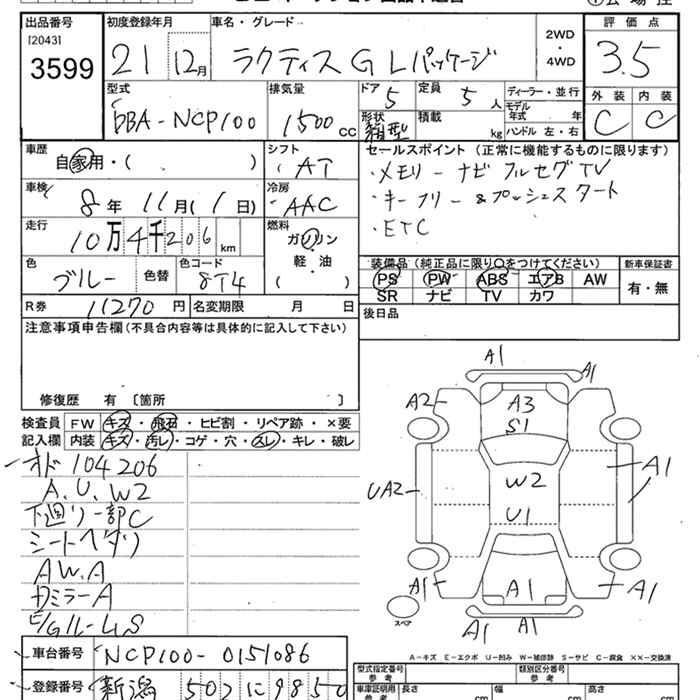 出品番号 初度登録年月 車名・グレード 評価点
[2043]
3599 21 12月 ラクティス G Lパッケージ 2WD・4WD 3.5
型式 排気量 ドア 定員 ディーラー・並行 外装 内装
DBA-NCP100 1500cc 5 5人 モデル年式 年 C C
形状 箱型 積載 kg ハンドル 左・右
車歴 シフト セールスポイント (正常に機能するものに限ります)
自家用・( ) AT ・メモリーナビ フルセグTV
車検 冷房 ・キーフリー & プッシュスタート
8年 11月(1日) AAC ・ETC
走行 燃料
10万4千206km ガソリン
軽・油
( )
装備品 (純正品に限り○をつけてください) 新車保証書
色 色替 色コード PS PW ABS エアB AW 有・無
ブルー 8T4 SR ナビ TV カワ
R券 11270円 名変期限 月 日 後日品
注意事項申告欄(不具合内容等は具体的に記入して下さい)
修復歴 有 〔箇所 〕
検査員 FW キズ・飛石・ヒビ割・リペア跡・×要
記入欄 内装 キズ・汚レ・コゲ・穴・スレ・キレ・破レ
オド104206
A.U.W2
下廻り一部C
シートヘタリ
AW.A
ミラーA
A1 A1
A2 A3
S1
UA2 W2 A1
U1
A1 A1 A1
A1 A1
スペア
A-キズ E-エクボ U-凹み W-補修跡 S-サビ C-腐食 ××-交換済
車台番号 NCP100-0151086 型式指定番号 参考 類別区分番号 参考
登録番号 新潟 502 に 9850 車庫証明用 参考 長さ cm 幅 cm 高さ cm